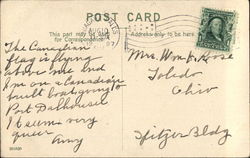 POST CARD
This part may be used
for Correspondence
Address only to be here
The Canadian
flag is flying
above me and
I'm on a Canadian
built boat going to
Port Dalhousie
It seems very
queer
Amy
Mrs. Wm. K. Rose
Toledo
Ohio
Spitzer Bldg